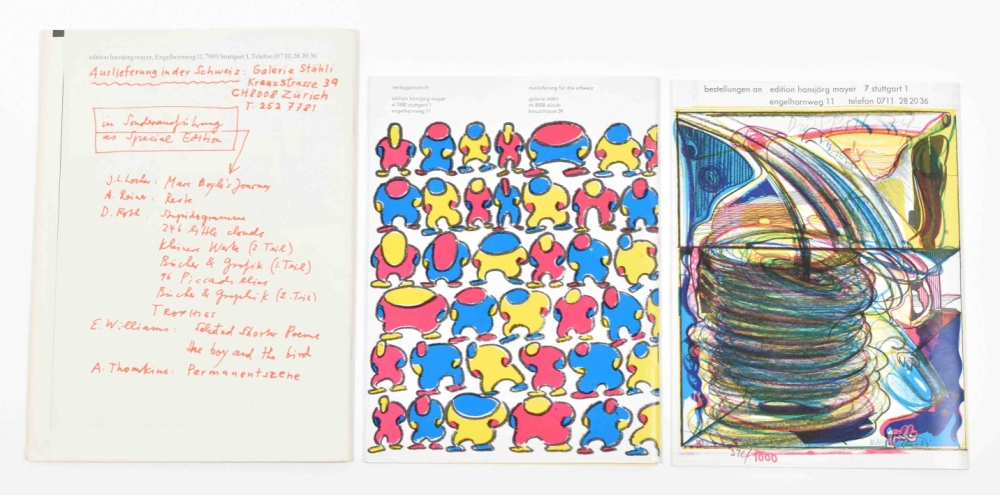 edition hansjörg mayer, Engelhornweg 11, 7000 Stuttgart 1, Telefon (07 11) 28 20 36
Auslieferung in der Schweiz: Galerie Stähli
Kreuzstrasse 39
CH8008 Zürich
T. 252 7781
in Sonderausführung
as Special Edition
J. L. Locher: Marc Boyle's Journey
A. Rainer: Reste
D. Roth:
246 little clouds
kleinere Werke (2. Teil)
Bücher & Grafik (1. Teil)
96 Piccadillies
Bücher & Graphik (2. Teil)
Trophies
E. Williams: Selected Shorter Poems
the boy and the bird
A. Thomkins: Permanentszene
verlagsanschrift
edition hansjörg mayer
d 7000 stuttgart 1
engelhornweg 11
auslieferung für die schweiz
galerie stähli
ch 8008 zürich
kreuzstrasse 39
bestellungen an edition hansjörg mayer 7 stuttgart 1
engelhornweg 11 telefon 0711 28 20 36
1000